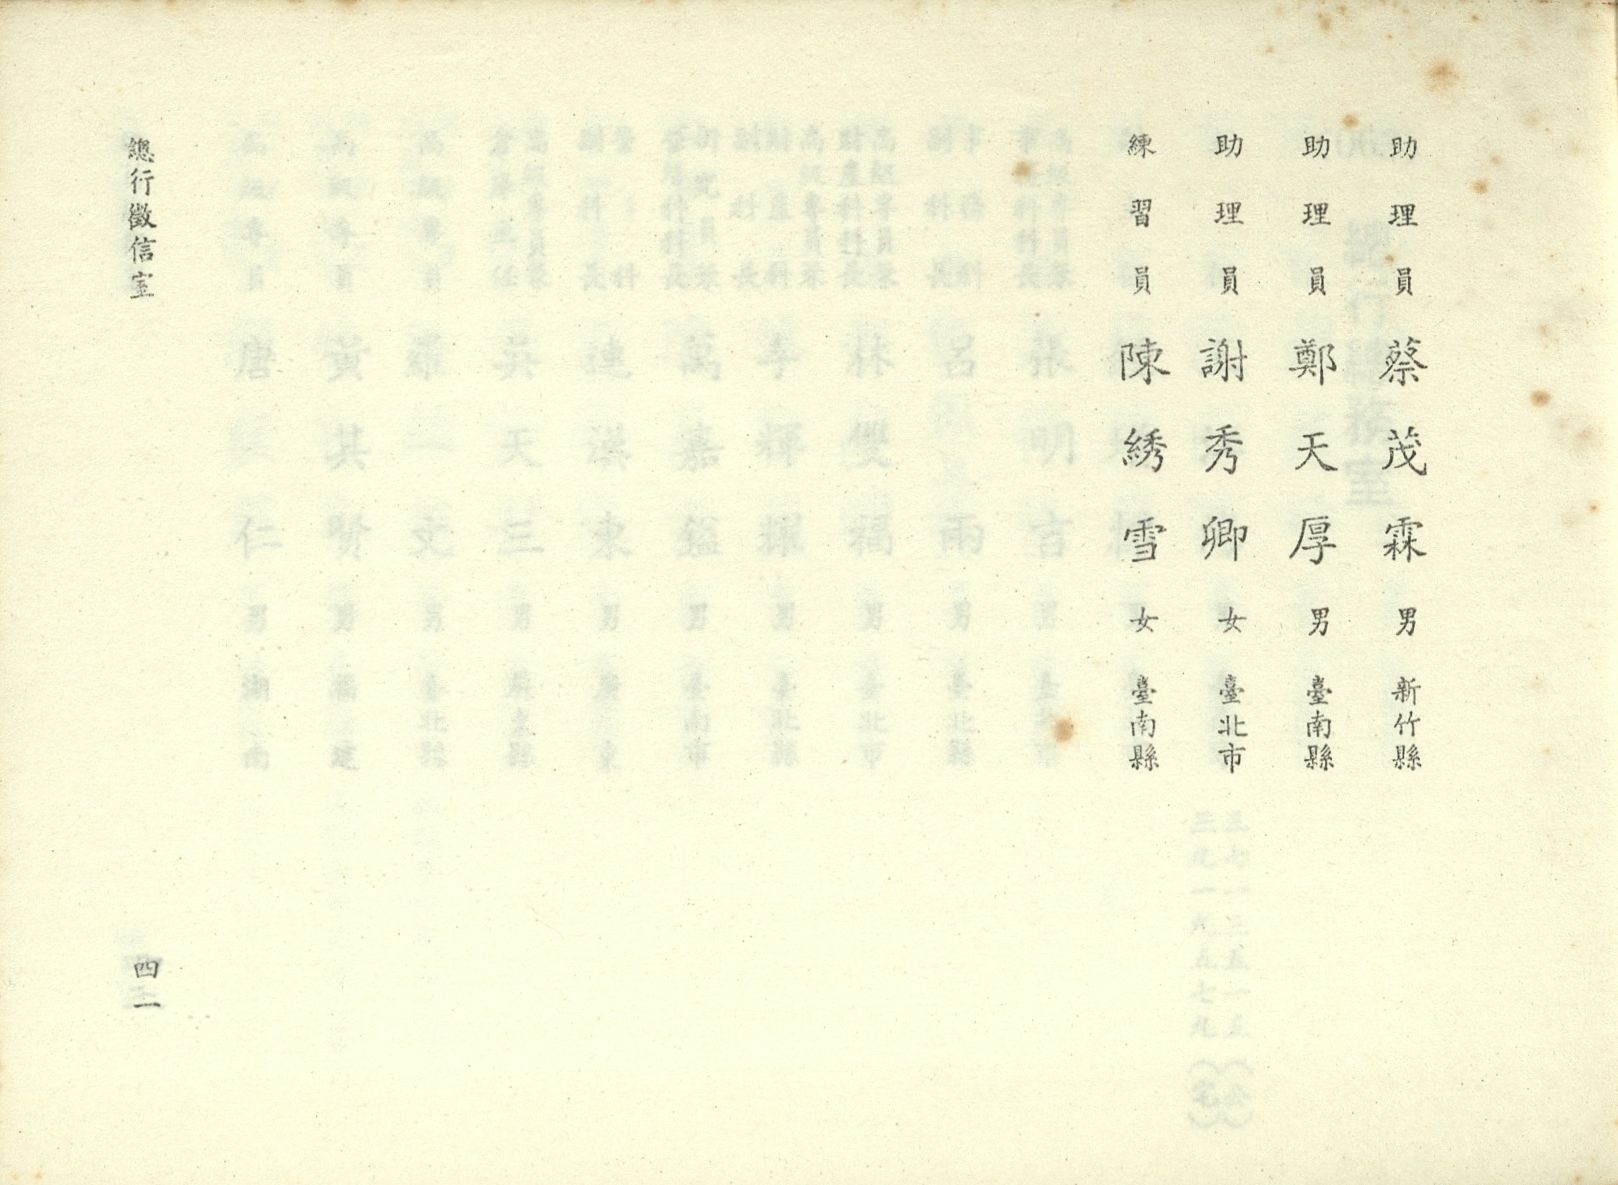 助理員 蔡茂霖 男 新竹縣
助理員 鄭天厚 男 臺南縣
助理員 謝秀卿 女 臺北市
練習員 陳綉雪 女 臺南縣
總行徵信室
四一